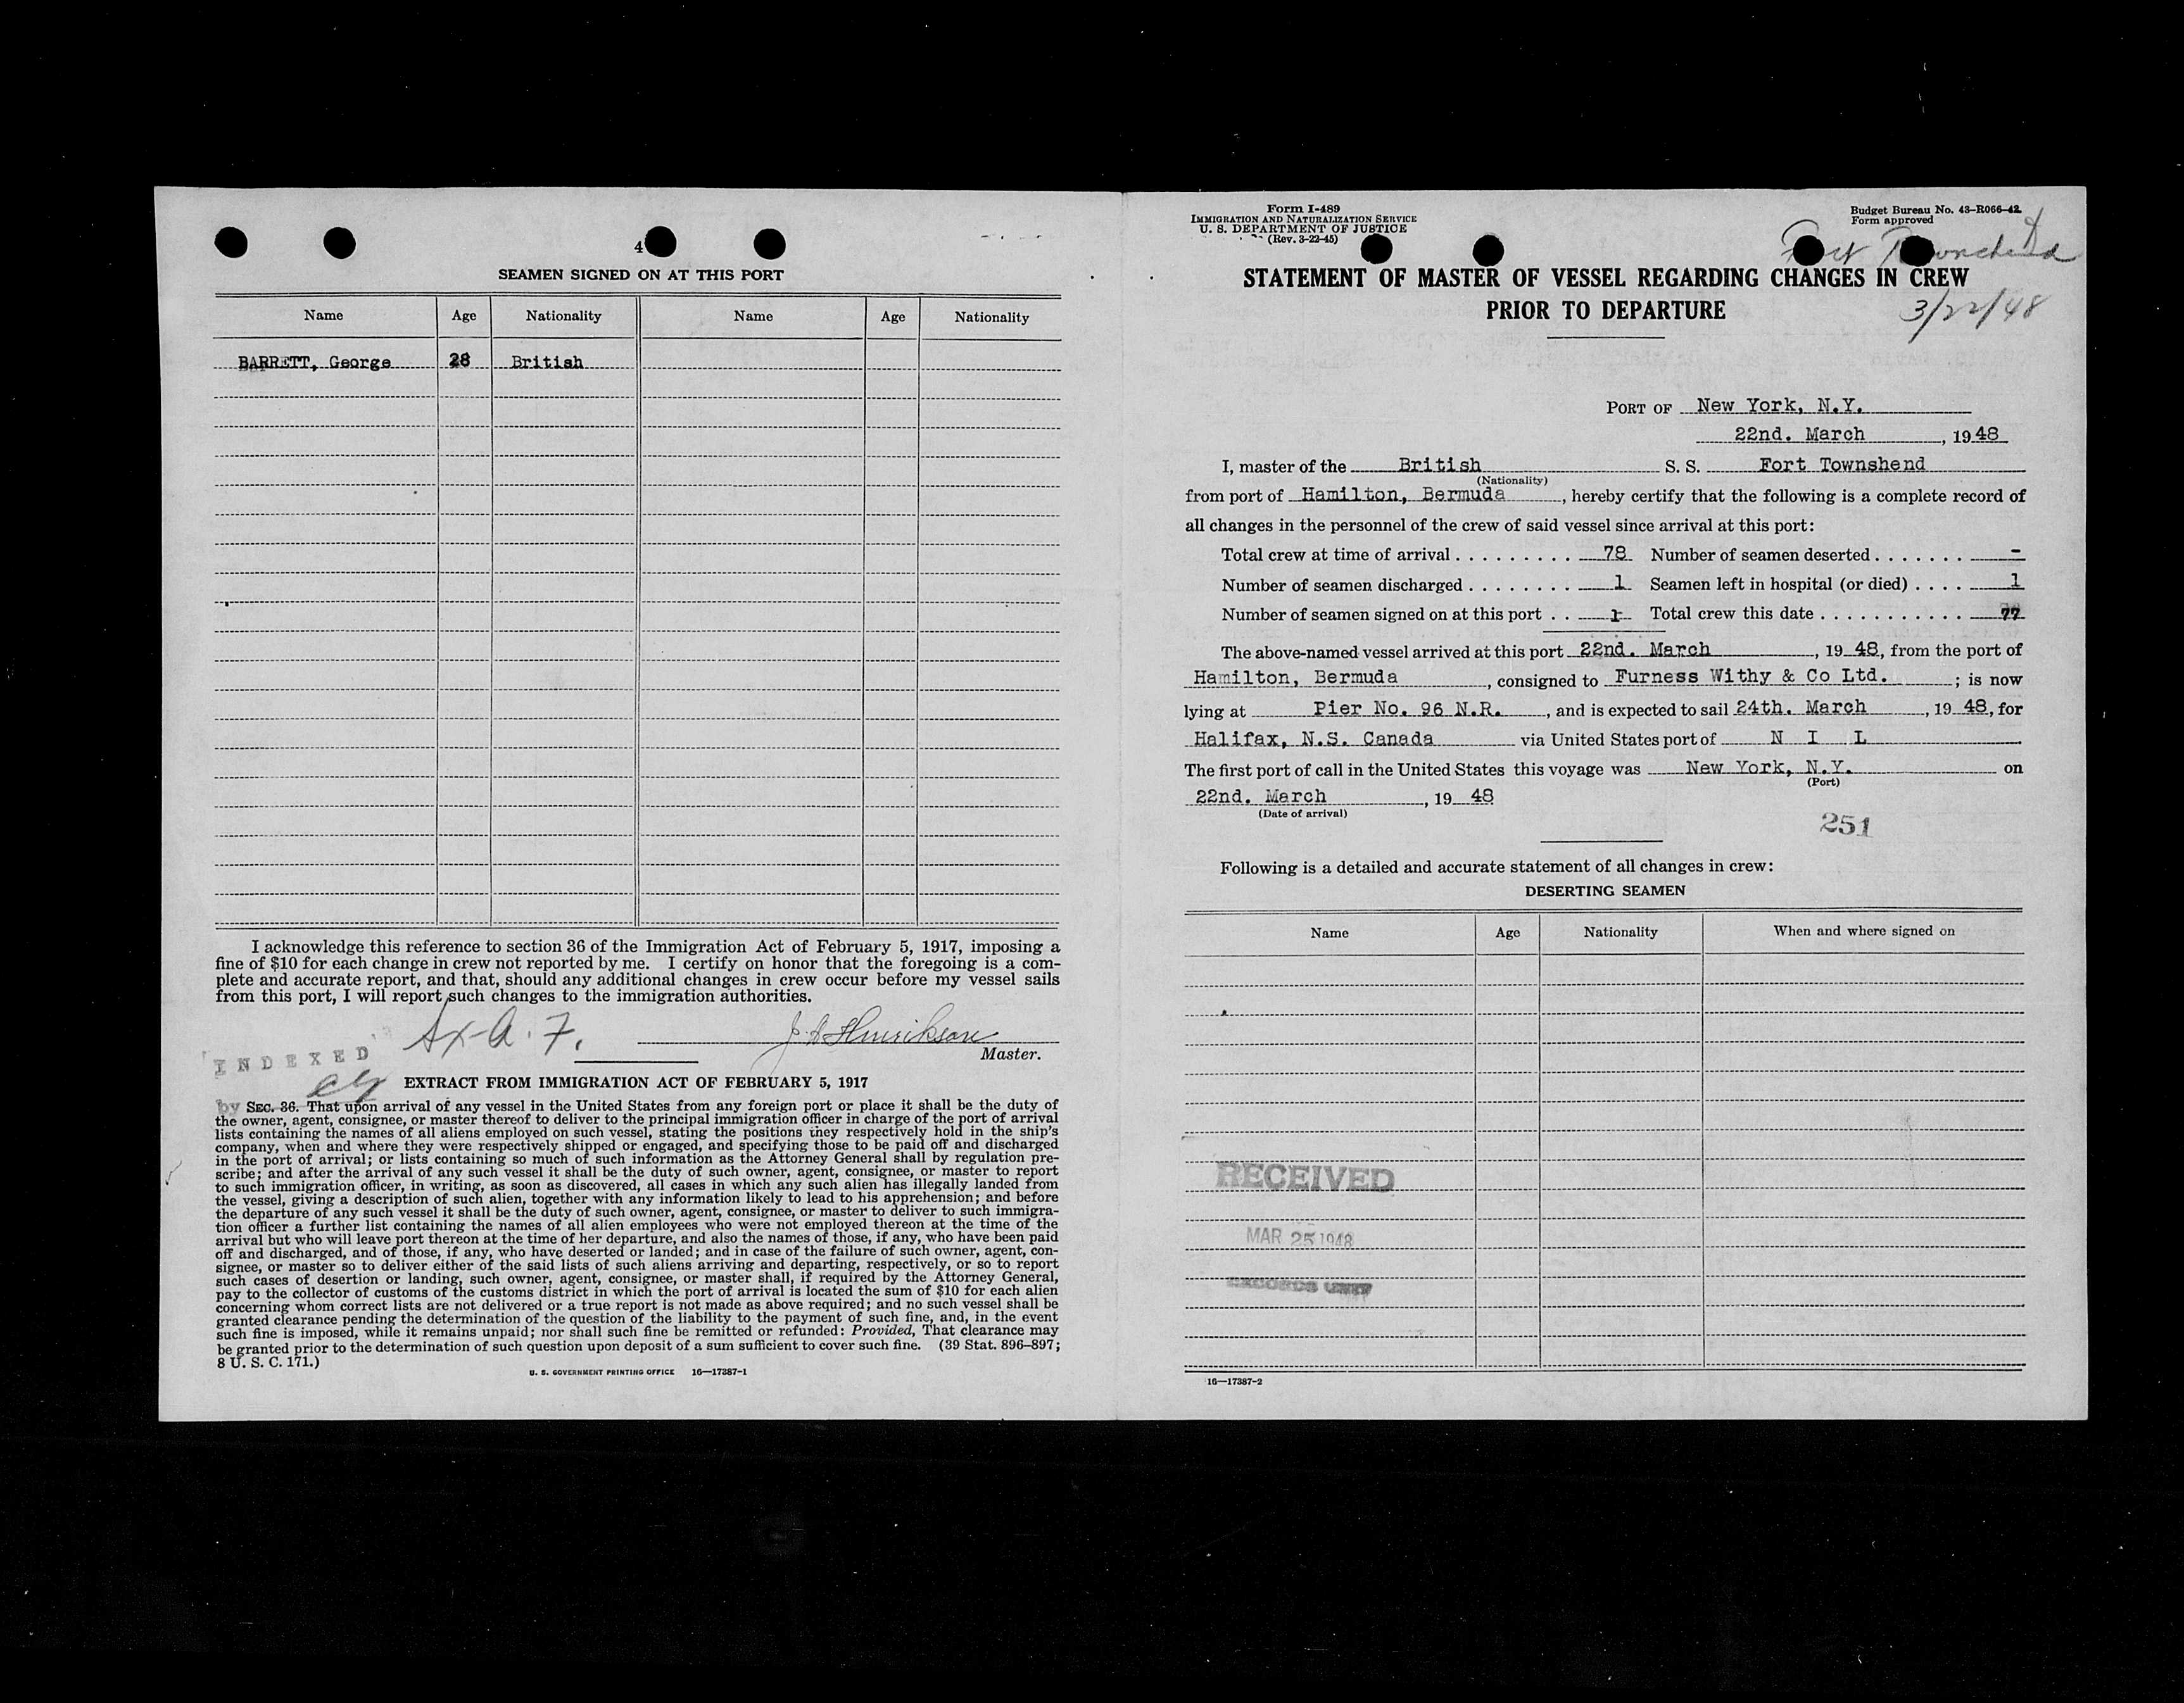 4
SEAMEN SIGNED ON AT THIS PORT
Name Age Nationality Name Age Nationality
BARRETT, George 28 British
I acknowledge this reference to section 36 of the Immigration Act of February 5, 1917, imposing a
fine of $10 for each change in crew not reported by me. I certify on honor that the foregoing is a com-
plete and accurate report, and that, should any additional changes in crew occur before my vessel sails
from this port, I will report such changes to the immigration authorities.
Master.
INDEXED
EXTRACT FROM IMMIGRATION ACT OF FEBRUARY 5, 1917
by SEC. 36. That upon arrival of any vessel in the United States from any foreign port or place it shall be the duty of
the owner, agent, consignee, or master thereof to deliver to the principal immigration officer in charge of the port of arrival
lists containing the names of all aliens employed on such vessel, stating the positions they respectively hold in the ship's
company, when and where they were respectively shipped or engaged, and specifying those to be paid off and discharged
in the port of arrival; or lists containing so much of such information as the Attorney General shall by regulation pre-
scribe; and after the arrival of any such vessel it shall be the duty of such owner, agent, consignee, or master to report
to such immigration officer, in writing, as soon as discovered, all cases in which any such alien has illegally landed from
the vessel, giving a description of such alien, together with any information likely to lead to his apprehension; and before
the departure of any such vessel it shall be the duty of such owner, agent, consignee, or master to deliver to such immigra-
tion officer a further list containing the names of all alien employees who were not employed thereon at the time of the
arrival but who will leave port thereon at the time of her departure, and also the names of those, if any, who have been paid
off and discharged, and of those, if any, who have deserted or landed; and in case of the failure of such owner, agent, con-
signee, or master so to deliver either of the said lists of such aliens arriving and departing, respectively, or so to report
such cases of desertion or landing, such owner, agent, consignee, or master shall, if required by the Attorney General,
pay to the collector of customs of the customs district in which the port of arrival is located the sum of $10 for each alien
concerning whom correct lists are not delivered or a true report is not made as above required; and no such vessel shall be
granted clearance pending the determination of the question of the liability to the payment of such fine, and, in the event
such fine is imposed, while it remains unpaid; nor shall such fine be remitted or refunded: Provided, That clearance may
be granted prior to the determination of such question upon deposit of a sum sufficient to cover such fine. (39 Stat. 896–897;
8 U. S. C. 171.)
U. S. GOVERNMENT PRINTING OFFICE 16—17387-1
Form I-489
IMMIGRATION AND NATURALIZATION SERVICE
U. S. DEPARTMENT OF JUSTICE
(Rev. 3-22-45)
Budget Bureau No. 43-R066-42
Form approved
STATEMENT OF MASTER OF VESSEL REGARDING CHANGES IN CREW
PRIOR TO DEPARTURE
3/22/48
PORT OF New York, N.Y.
22nd. March, 1948
I, master of the British S. S. Fort Townshend
(Nationality)
from port of Hamilton, Bermuda, hereby certify that the following is a complete record of
all changes in the personnel of the crew of said vessel since arrival at this port:
Total crew at time of arrival . . . . . . . . . . 78 Number of seamen deserted . . . . . . . -
Number of seamen discharged . . . . . . . . . 1 Seamen left in hospital (or died) . . . . 1
Number of seamen signed on at this port . . 1 Total crew this date . . . . . . . . . . . . 77
The above-named vessel arrived at this port 22nd. March, 19 48, from the port of
Hamilton, Bermuda, consigned to Furness Withy & Co Ltd. ; is now
lying at Pier No. 96 N.R., and is expected to sail 24th. March, 19 48, for
Halifax, N.S. Canada via United States port of N I L
The first port of call in the United States this voyage was New York, N.Y. on
(Port)
22nd. March, 19 48
(Date of arrival)
251
Following is a detailed and accurate statement of all changes in crew:
DESERTING SEAMEN
Name Age Nationality When and where signed on
RECEIVED
MAR 25 1948
RECORDS UNIT
16—17387-2